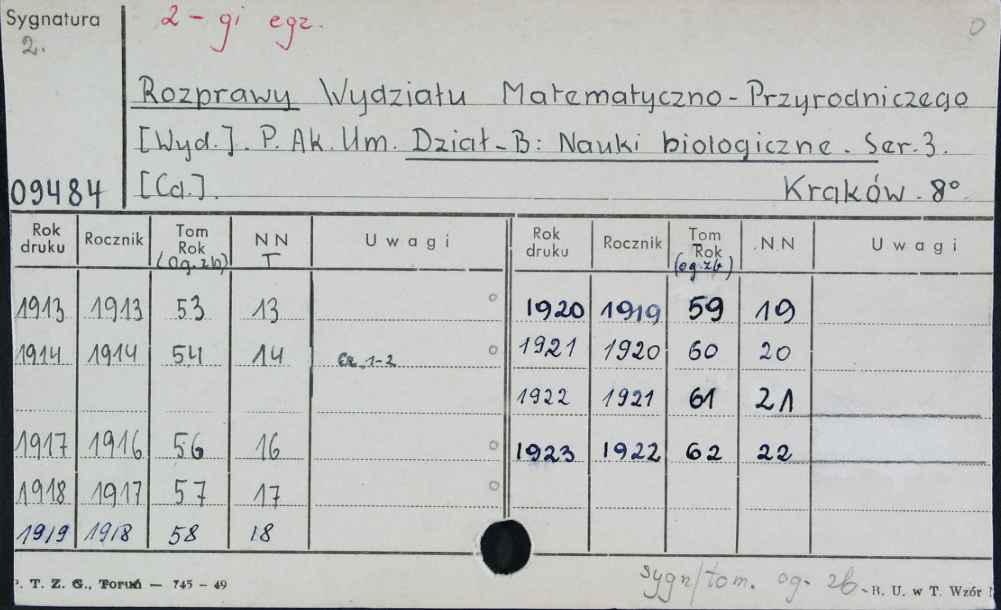 Sygnatura 2-gi egz. 0
2.
Rozprawy Wydziału Matematyczno-Przyrodniczego
[Wyd.]. P. Ak. Um. Dział-B: Nauki biologiczne. Ser. 3.
09484 [Cd.]. Kraków. 8°
Rok druku Rocznik Tom Rok (og. zb) NN T Uwagi Rok druku Rocznik Tom Rok (og. zb) NN Uwagi
1913 1913 53 13 1920 1919 59 19
1914 1914 54 14 cz. 1-2 1921 1920 60 20
1922 1921 61 21
1917 1916 56 16 1923 1922 62 22
1918 1917 57 17
1919 1918 58 18
. T. Z. G., Toruń — 745 - 49 sygn/tom. og. zb. B. U. w T. Wzór